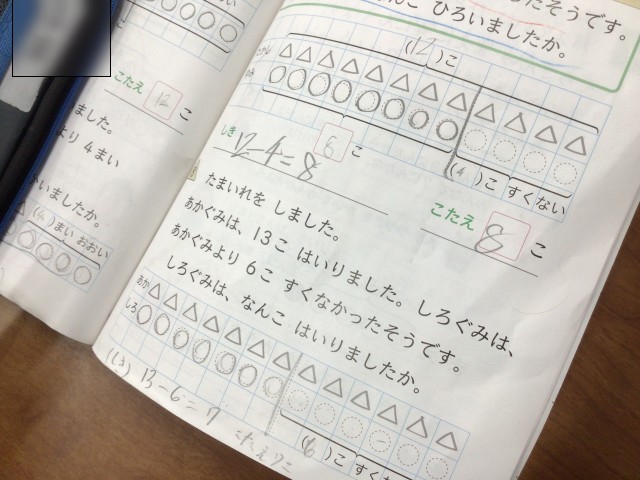 こたえ 12 こ
ました。
より 4まい
いましたか。
(4)まい おおい
たそうです。
んこ ひろいましたか。
(12)こ
(4)こ すくない
しき 12-4=8
6 こ
こたえ 8 こ
たまいれを しました。
あかぐみは、13こ はいりました。しろぐみは、
あかぐみより 6こ すくなかったそうです。
しろぐみは、なんこ はいりましたか。
あか
しろ
(6)こ すく
(しき) 13-6=7
こたえ7こ